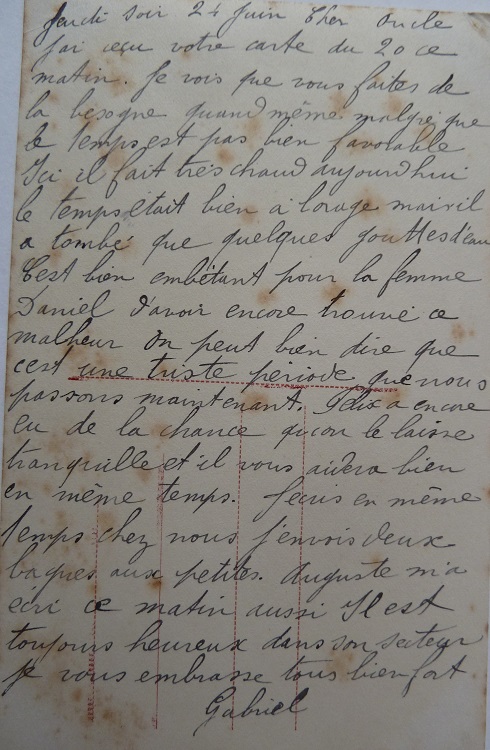 Jeudi soir 24 Juin Cher Oncle
Jai reçu votre carte du 20 ce
matin. Je vois que vous faites de
la besogne quand même malgre que
le temps est pas bien favorable
Ici il fait très chaud aujourdhui
le temps était bien a lorage mais il
a tombé que quelques gouttes d'eau
C'est bien embêtant pour la femme
Daniel d'avoir encore trouvé ce
malheur On peut bien dire que
cest une triste periode que nous
passons maintenant. Felix a encore
eu de la chance quon le laisse
tranquille et il vous aidera bien
en même temps. Jecris en même
temps chez nous j'envois deux
bagues aux petites. Auguste m'a
ecri ce matin aussi Il est
toujours heureux dans son secteur
Je vous embrasse tous bien fort
Gabriel